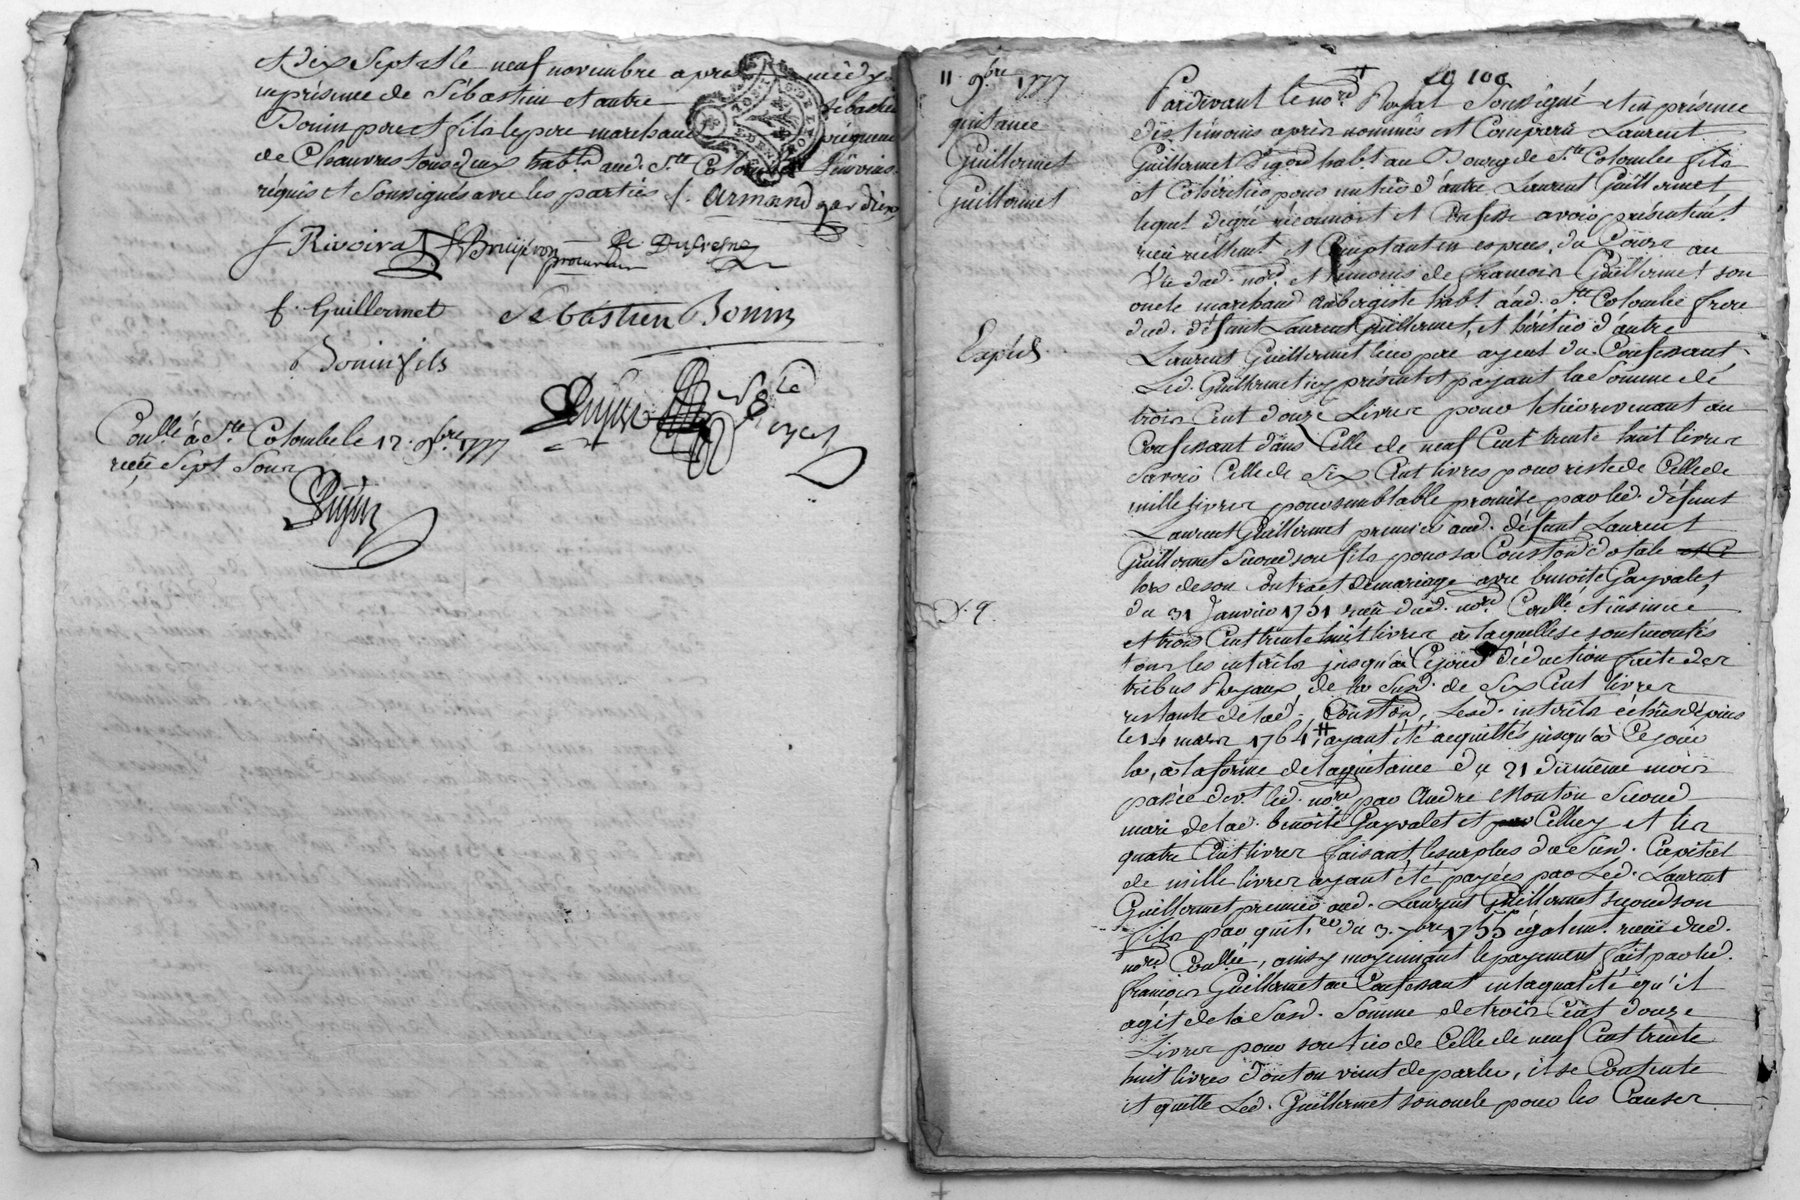 et dix Sept et le neuf novembre apres midy
en présence de Sébastien et autre Sébastien
Bonin pere et fils le pere marchand
de Chanvres tous deux habts aud. Ste Colombe témoins
réquis et Soussignés avec les parties f. Armand
f Rivoira f Bruyeron procureur De Dufresne
f. Guillermet Sebastien Bonin
Bonin fils
Coullé à Ste Colombe le 12. 9bre 1777
reçu Sept Sous
11. 9bre 1777
quitance
Guillermet
Guillermet
Expédié
Pardevant le nore Royal Soussigné et en présence
des témoins après nommés est Comparu Laurent
Guillermet habt au Bourg de Ste Colombe fils
et Cohéritier pour un tiers d'autre Laurent Guillermet
lequel de gré reconnoit et Confesse avoir présentemt
reçu réellemt et Comptant en espèces du Cours au
Vu dud. nore et témoins de françois Guillermet son
oncle marchand aubergiste habt aud. Ste Colombe frere
dud. défunt Laurent Guillermet, et héritier d'autre
Laurent Guillermet leur pere, ayeul du Confessant
Led. Guillermet icy présent et payant la Somme de
trois Cent douze Livres pour le tiers revenant au
Confessant dans Celle de neuf Cent trente huit livres
Savoir Celle de Six Cent livres pour reste de Celle de
mille livres pour semblable promise par led. défunt
Laurent Guillermet premier aud. défunt Laurent
Guillermet Second son fils pour sa Conston dotale
lors de son Contract de mariage avec benoite Gayvalet
du 31 Janvier 1751 reçu dud. nore Coullé et insinué
et trois Cent trente huit livres à laquelle se sont montés
tous les intérêts jusqu'à Cejourd déduction faite des
tribus Royaux de la Susd. de Six Cent livres
restante de lad. Conston, Lesd. intérêts échus dépuis
le 14 mars 1764, ayant été acquittés jusqu'à Cejour
la, à la forme de la quitance du 21 du même mois
passée devt led. nore par André Mouton Second
mari de lad. benoite Gayvalet et Celluy et les
quatre Cent livres faisant le surplus du Susd. Capital
de mille livres ayant été payées par Led. Laurent
Guillermet premier aud. Laurent Guillermet second son
fils par quit.ce du 3. 7bre 1755 égalemt. reçue dud.
nore Coullée, ainsy moyennant le payement fait par led.
françois Guillermet au Confessant en la qualité qu'il
agit de la Susd. Somme de trois Cent douze
Livres pour son tiers de Celle de neuf Cent trente
huit livres dont on vient de parler, il se Contente
et quitte Led. Guillermet son oncle pour les Causes